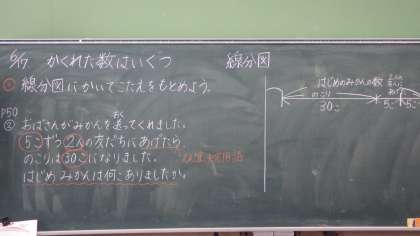 かくれた数はいくつ
線分図にかいてこたえをもとめよう。
P50
② おばさんがみかんを送ってくれました。
おく
5こずつ2人の友だちにあげたら
のこりは30こになりました。
はじめみかんは何こありましたか。
線分図
はじめのみかんの数
のこり
30こ
2人に
あげた
5こ 5こ